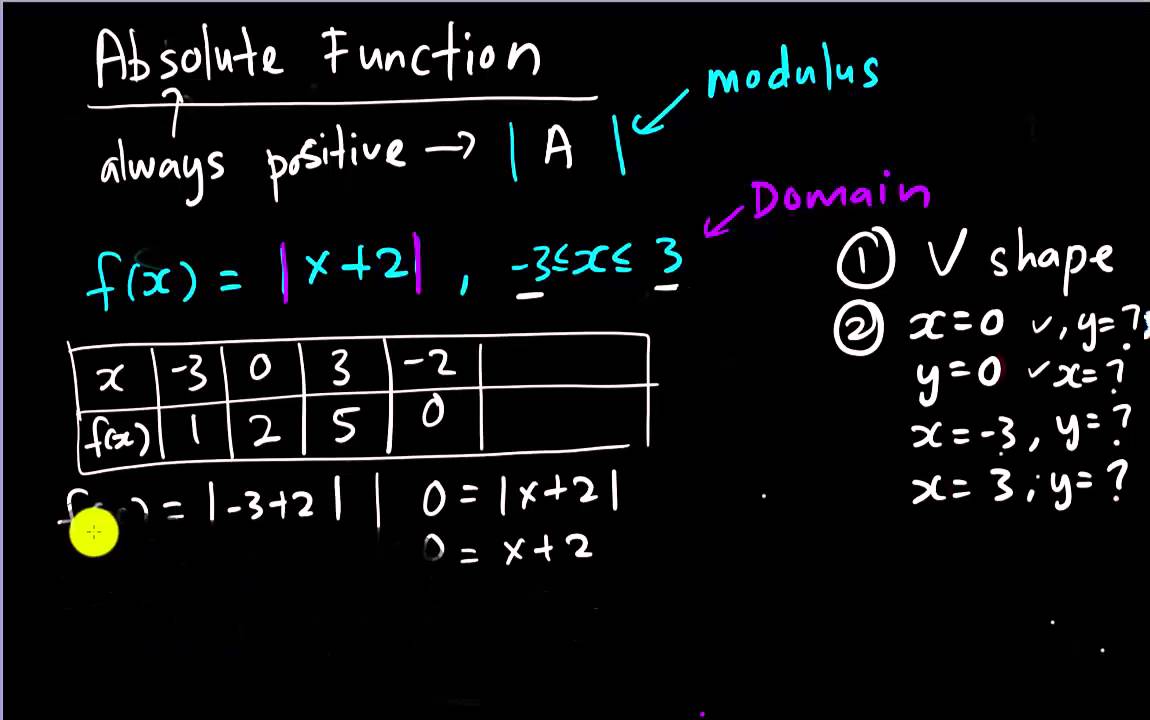 Absolute Function
modulus
always positive → | A |
Domain
f(x) = |x+2| , -3≤x≤ 3
① V shape
② x=0 ✓, y=?
y=0 ✓ x=?
x=-3, y=?
x= 3, y=?
x -3 0 3 -2
f(x) 1 2 5 0
= |-3+2| | 0 = |x+2|
0 = x+2